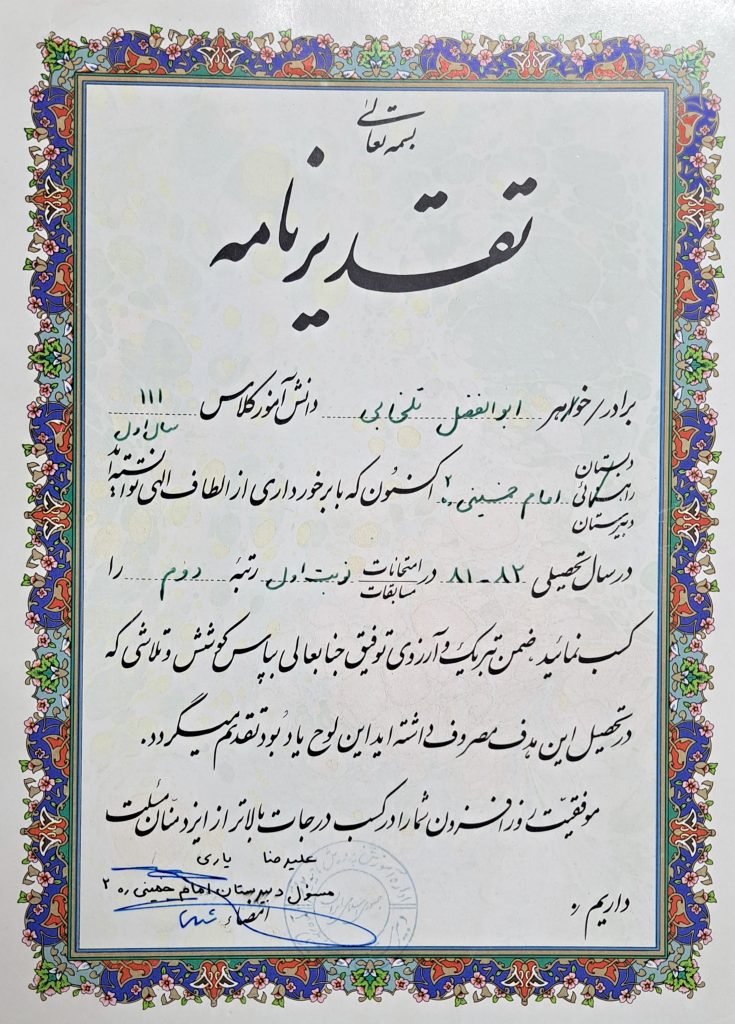 بسمه تعالی
تقدیرنامه
برادر/خواهر ابوالفضل تلخابی دانش آموز کلاس ۱۱۱
سال اول
دبستان
راهنمائی امام خمینی ره ۲ اکنون که با برخورداری از الطاف الهی توانسته اید
دبیرستان
در سال تحصیلی ۸۲-۸۱ در امتحانات نوبت اول رتبهٔ دوم را
مسابقات
کسب نمائید ضمن تبریک و آرزوی توفیق جنابعالی بپاس کوشش و تلاشی که
در تحصیل این هدف مصروف داشته اید این لوح یادبود تقدیم میگردد.
موفقیت روزافزون شما را در کسب درجات بالاتر از ایزد منّان مسئلت
داریم
علیرضا یاری
مسؤول دبیرستان امام خمینی ره ۲
امضاء